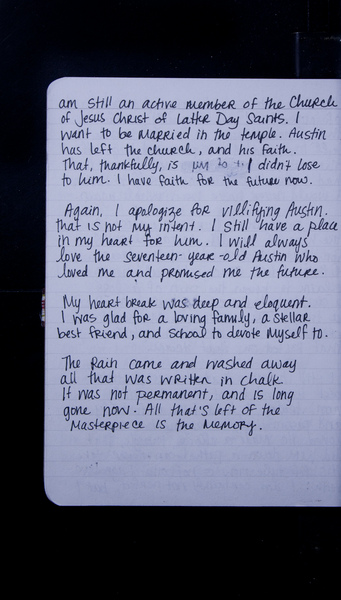 am still an active member of the Church
of Jesus Christ of Latter Day Saints. I
want to be married in the temple. Austin
has left the church, and his faith.
That, thankfully, is I didn't lose
to him. I have faith for the future now.
Again, I apologize for villifying Austin.
that is not my intent. I still have a place
in my heart for him. I will always
love the seventeen-year-old Austin who
loved me and promised me the future.
My heart break was deep and eloquent.
I was glad for a loving family, a stellar
best friend, and school to devote myself to.
The rain came and washed away
all that was written in chalk
It was not permanent, and is long
gone now. All that's left of the
Masterpiece is the memory.